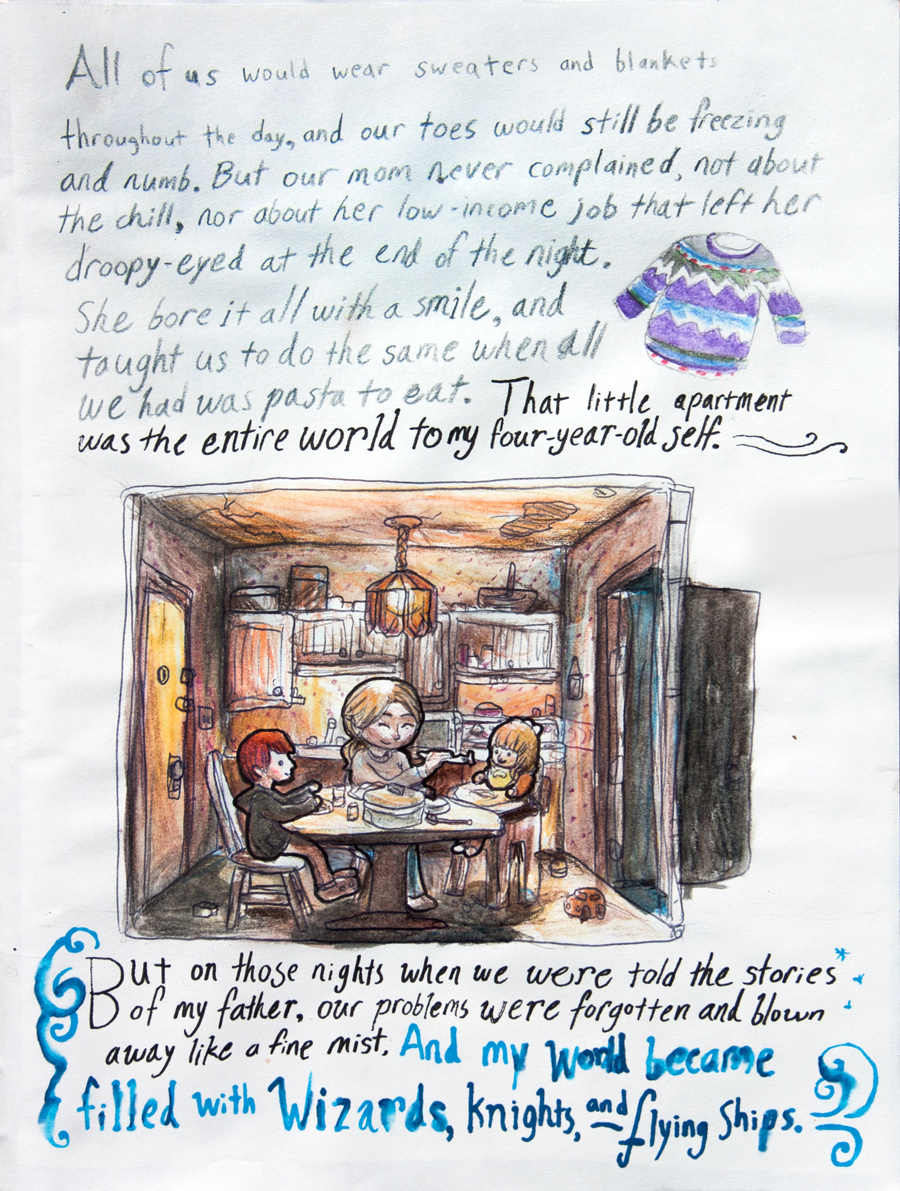 All of us would wear sweaters and blankets
throughout the day, and our toes would still be freezing
and numb. But our mom never complained, not about
the chill, nor about her low-income job that left her
droopy-eyed at the end of the night.
She bore it all with a smile, and
taught us to do the same when all
we had was pasta to eat. That little apartment
was the entire world to my four-year-old self.
But on those nights when we were told the stories
of my father, our problems were forgotten and blown
away like a fine mist. And my world became
filled with Wizards, knights, and flying ships.